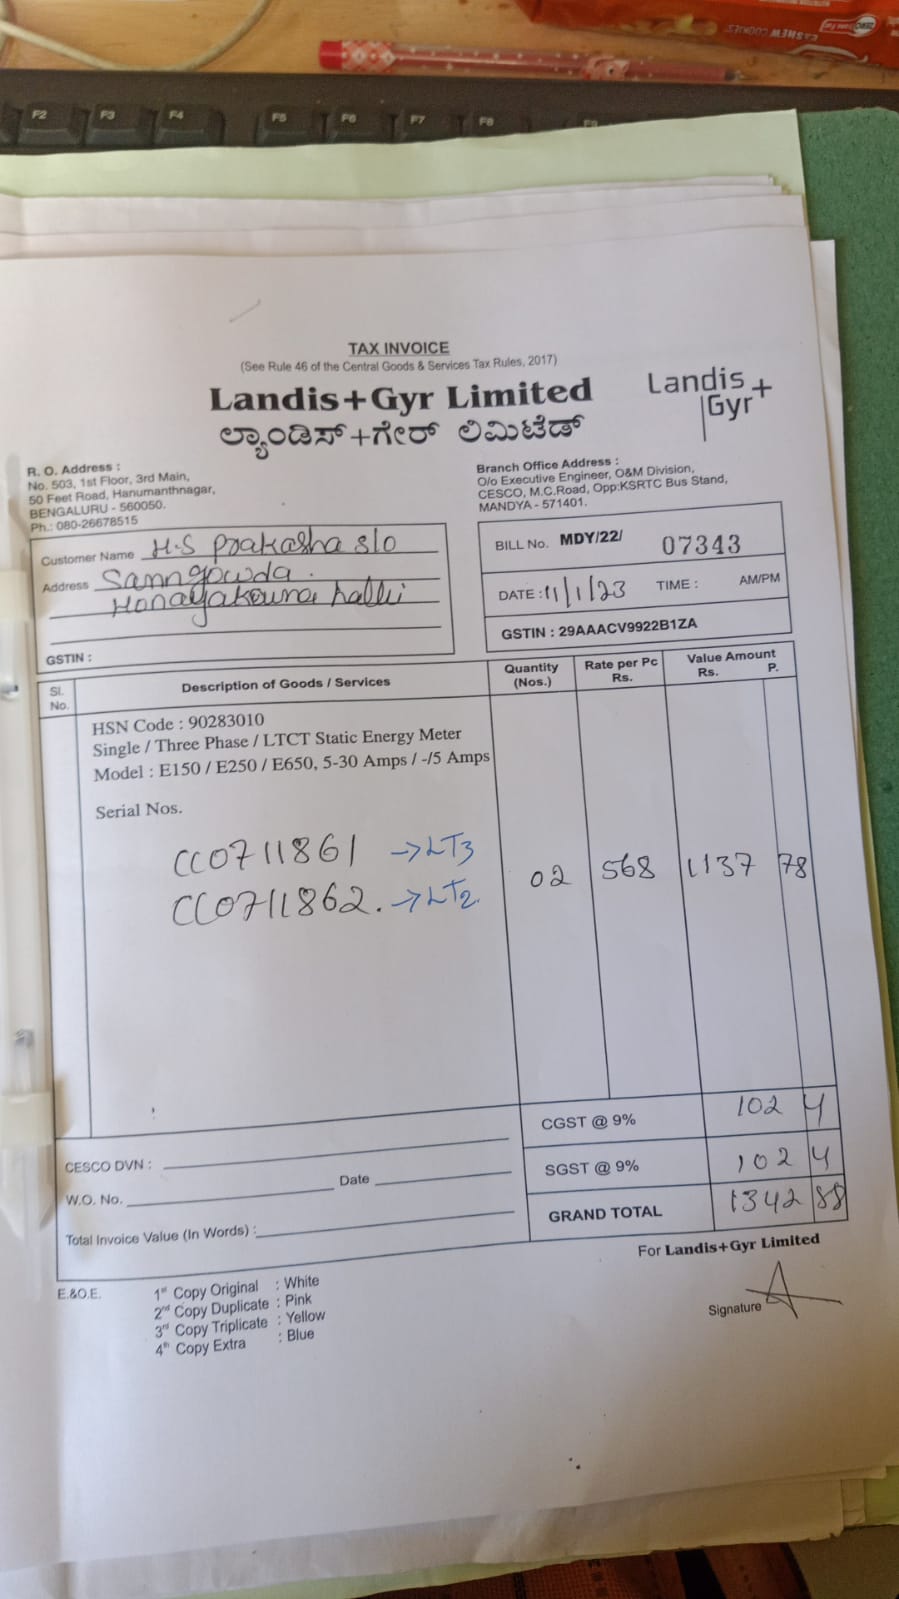 F2 F3 F4 F5 F6 F7 F8 F9
CASHEW COOKIES
TAX INVOICE
(See Rule 46 of the Central Goods & Services Tax Rules, 2017)
Landis+Gyr Limited
ಲ್ಯಾಂಡಿಸ್+ಗೇರ್ ಲಿಮಿಟೆಡ್
Landis
Gyr+
R. O. Address :
No. 503, 1st Floor, 3rd Main,
50 Feet Road, Hanumanthnagar,
BENGALURU - 560050.
Ph.: 080-26678515
Branch Office Address :
O/o Executive Engineer, O&M Division,
CESCO, M.C.Road, Opp:KSRTC Bus Stand,
MANDYA - 571401.
Customer Name H.S Prakasha S/o
Address Sanngowda.
Honayakouna halli
GSTIN :
BILL No. MDY/22/ 07343
DATE : 11/1/23 TIME : AM/PM
GSTIN : 29AAACV9922B1ZA
Sl. No. Description of Goods / Services Quantity (Nos.) Rate per Pc Rs. Value Amount Rs. P.
HSN Code : 90283010
Single / Three Phase / LTCT Static Energy Meter
Model : E150 / E250 / E650, 5-30 Amps / -/5 Amps
Serial Nos.
CC0711861 →LT3
CC0711862. →LT2.
02 568 1137 78
CGST @ 9% 102 4
SGST @ 9% 102 4
GRAND TOTAL 1342 88
CESCO DVN :
W.O. No. Date
Total Invoice Value (In Words) :
For Landis+Gyr Limited
Signature
E.&O.E.
1st Copy Original : White
2nd Copy Duplicate : Pink
3rd Copy Triplicate : Yellow
4th Copy Extra : Blue